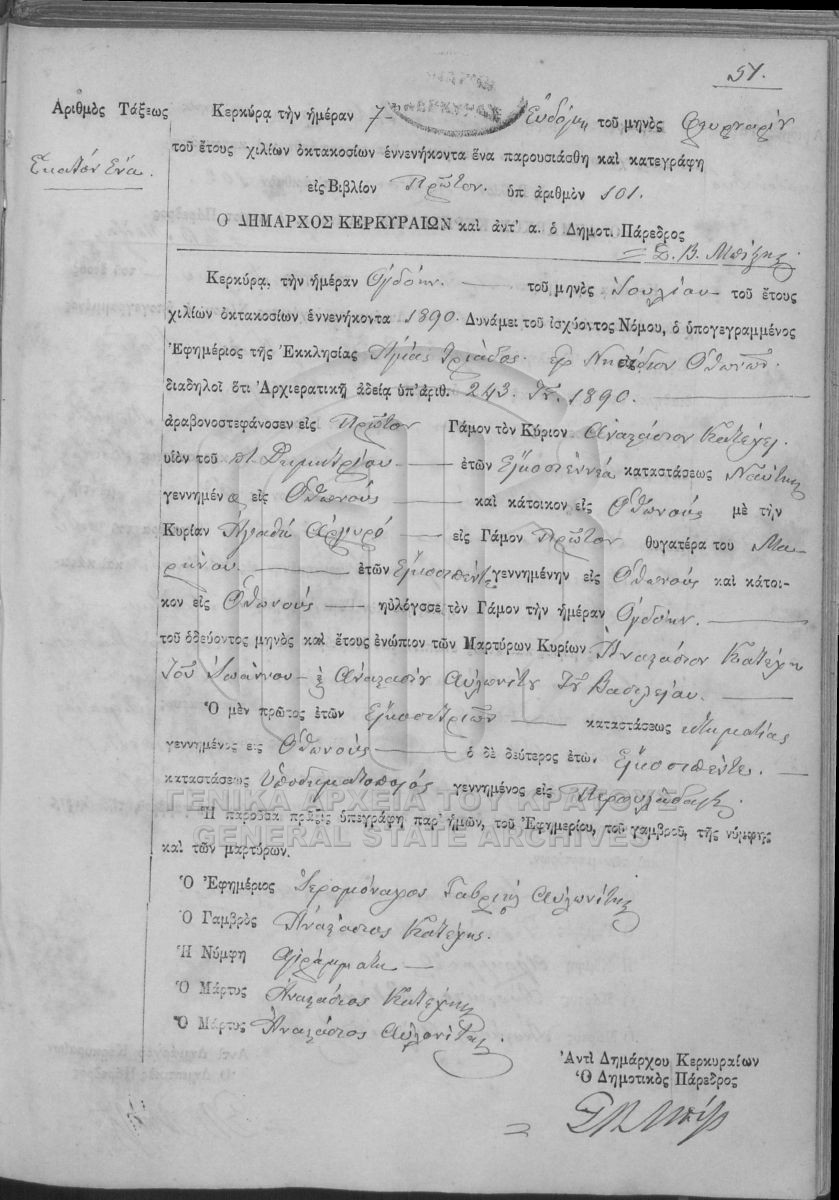 51.
Ἀριθμὸς Τάξεως
Ἑκατὸν Ἕνα.
Κερκύρᾳ τὴν ἡμέραν 7 Ἑβδόμη τοῦ μηνὸς Φεβρουαρίου
τοῦ ἔτους χιλίων ὀκτακοσίων ἐννενήκοντα ἕνα παρουσιάσθη καὶ κατεγράφη
εἰς Βιβλίον Πρῶτον. ὑπ ἀριθμὸν 101.
Ο ΔΗΜΑΡΧΟΣ ΚΕΡΚΥΡΑΙΩΝ καὶ ἀντ' α. ὁ Δημοτ. Πάρεδρος
Σ. Β.
Κερκύρᾳ, τὴν ἡμέραν Ὀγδόην. τοῦ μηνὸς Ἰουλίου τοῦ ἔτους
χιλίων ὀκτακοσίων ἐννενήκοντα 1890. Δυνάμει τοῦ ἰσχύοντος Νόμου, ὁ ὑπογεγραμμένος
Ἐφημέριος τῆς Ἐκκλησίας Ἁγίας Τριάδος. Ὀθωνῶν.
διαδηλοῖ ὅτι Ἀρχιερατικῇ ἀδείᾳ ὑπ' ἀριθ. 243. 1890.
ἀραβονοστεφάνοσεν εἰς Πρῶτον Γάμον τὸν Κύριον Ἀναστάσιον Κατέχη.
υἱὸν τοῦ π. Δημητρίου ἐτῶν Εἰκοσιεννέα καταστάσεως Ναύτης
γεννημένο εἰς Ὀθωνούς καὶ κάτοικον εἰς Ὀθωνούς μὲ τὴν
Κυρίαν Ἀγαθὴ Ἀργυρό εἰς Γάμον Πρῶτον θυγατέρα του Μα-
ρίνου. ἐτῶν Εἰκοσιπέντε γεννημένην εἰς Ὀθωνούς καὶ κάτοι-
κον εἰς Ὀθωνούς ηὐλόγσσε τὸν Γάμον τὴν ἡμέραν Ὀγδόην.
τοῦ ὁδεύοντος μηνὸς καὶ ἔτους ἐνώπιον τῶν Μαρτύρων Κυρίων Ἀναστάσιον Κατέχη
τοῦ Ἰωάννου Ἀναστασίου Αὐλωνίτου τοῦ Βασιλείου.
Ὁ μὲν πρῶτος ἐτῶν Εἰκοσιτριῶν καταστάσεως κτηματίας
γεννημένος εις Ὀθωνούς ὁ δὲ δεύτερος ἐτῶν Εἰκοσιπέντε.
καταστάσεως Ὑποδηματοποιός γεννημένος εἰς Περουλάδες.
ΓΕΝΙΚΑ ΑΡΧΕΙΑ ΤΟΥ ΚΡΑΤΟΥΣ
Ἡ παροῦσα πρᾶξις ὑπεγράφη παρ' ἡμῶν, τοῦ Ἐφημερίου, τοῦ γαμβροῦ, τῆς νύμφης
GENERAL STATE ARCHIVES
καὶ τῶν μαρτύρων.
Ὁ Ἐφημέριος Ἱερομόναχος Γαβριὴλ Αὐλωνίτης
Ὁ Γαμβρὸς Ἀναστάσιος Κατέχης.
Ἡ Νύμφη Ἀγράμματη
Ὁ Μάρτυς Ἀναστάσιος Κατέχης
Ὁ Μάρτυς Ἀναστάσιος Αὐλονίτης.
Ἀντὶ Δημάρχου Κερκυραίων
Ὁ Δημοτικὸς Πάρεδρος